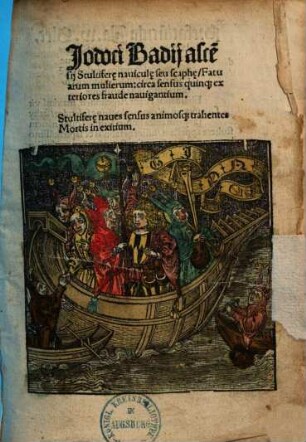 Jodoci Badij ascē
sij Stultiferę nauiculę seu scaphę/Fatu
arum mulierum: circa sensus quinqȝ ex
teriores fraude nauigantium.
Stultiferę naues sensus animosqȝ trahentes
Mortis in exitium.
IN
AUGSBURG